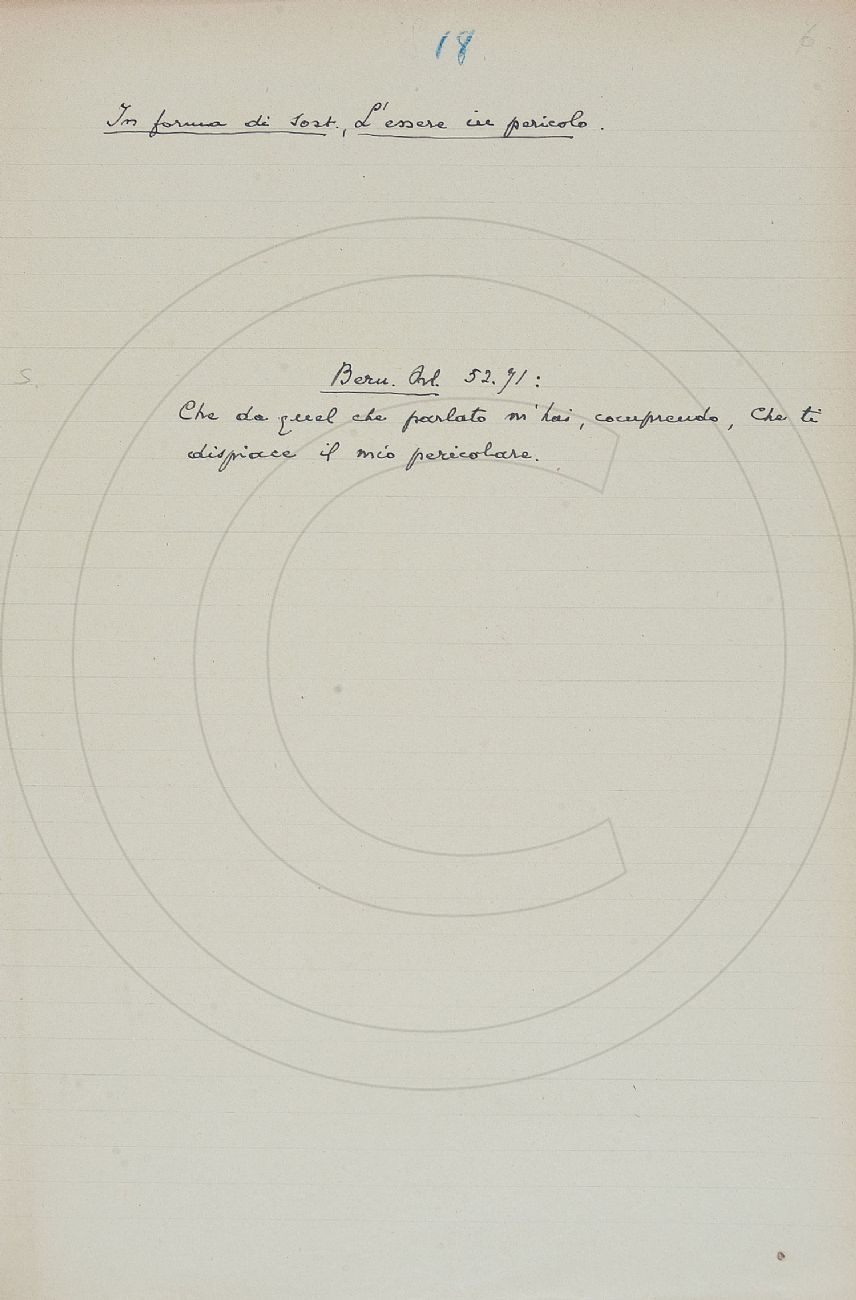 18
6
In forma di sost., L'essere in pericolo.
S.
Bern. Orl. 52. 71:
Che da quel che parlato m'hai, comprendo, Che ti
dispiace il mio pericolare.